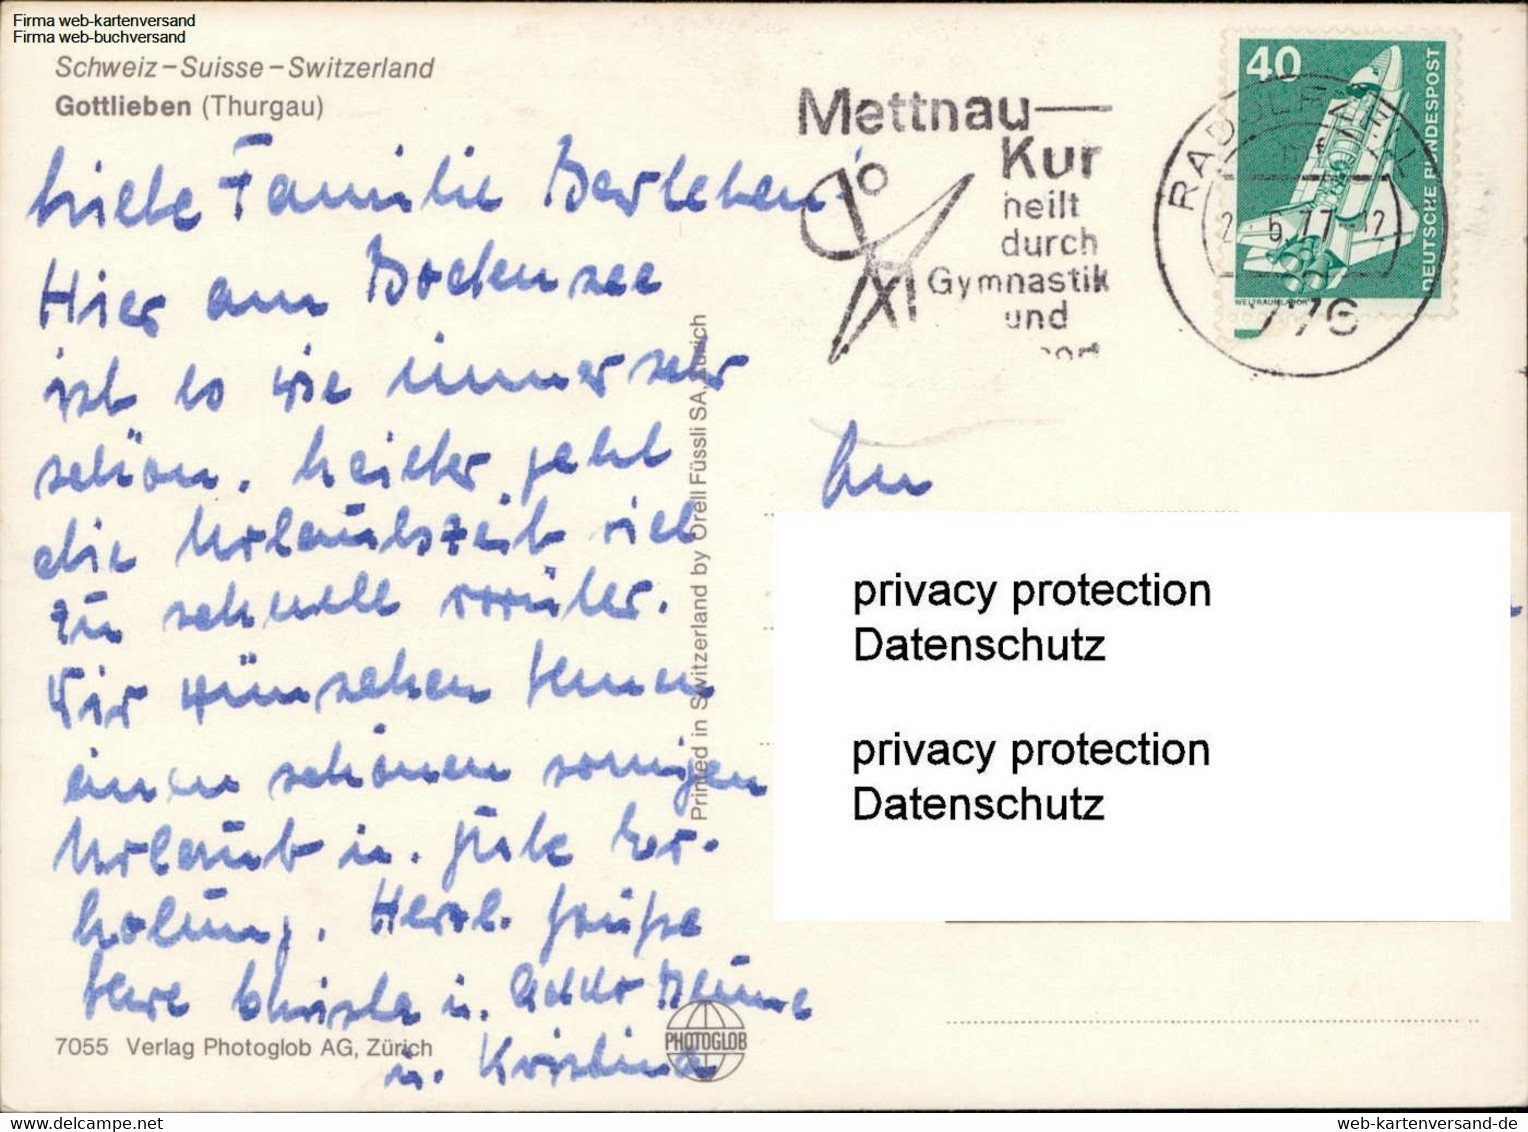 Firma web-kartenversand
Firma web-buchversand
Schweiz – Suisse – Switzerland
Gottlieben (Thurgau)
Liebe Familie Barleben!
Hier am Bodensee
ist es wie immer sehr
schön. Leider geht
die Urlaubszeit viel
zu schnell vorüber.
Wir wünschen Ihnen
einen schönen sonnigen
Urlaub u. gute Er-
holung. Herzl. Grüße
Ihre Christa u.
u. Kristina
7055 Verlag Photoglob AG, Zürich
PHOTOGLOB
Printed in Switzerland by Orell Füssli SA, Zürich
Mettnau—
Kur
heilt
durch
Gymnastik
und
40
DEUTSCHE BUNDESPOST
WELTRAUMLABOR
RADOLFZELL
6.77-12
An
privacy protection
Datenschutz
privacy protection
Datenschutz
www.delcampe.net
web-kartenversand-de